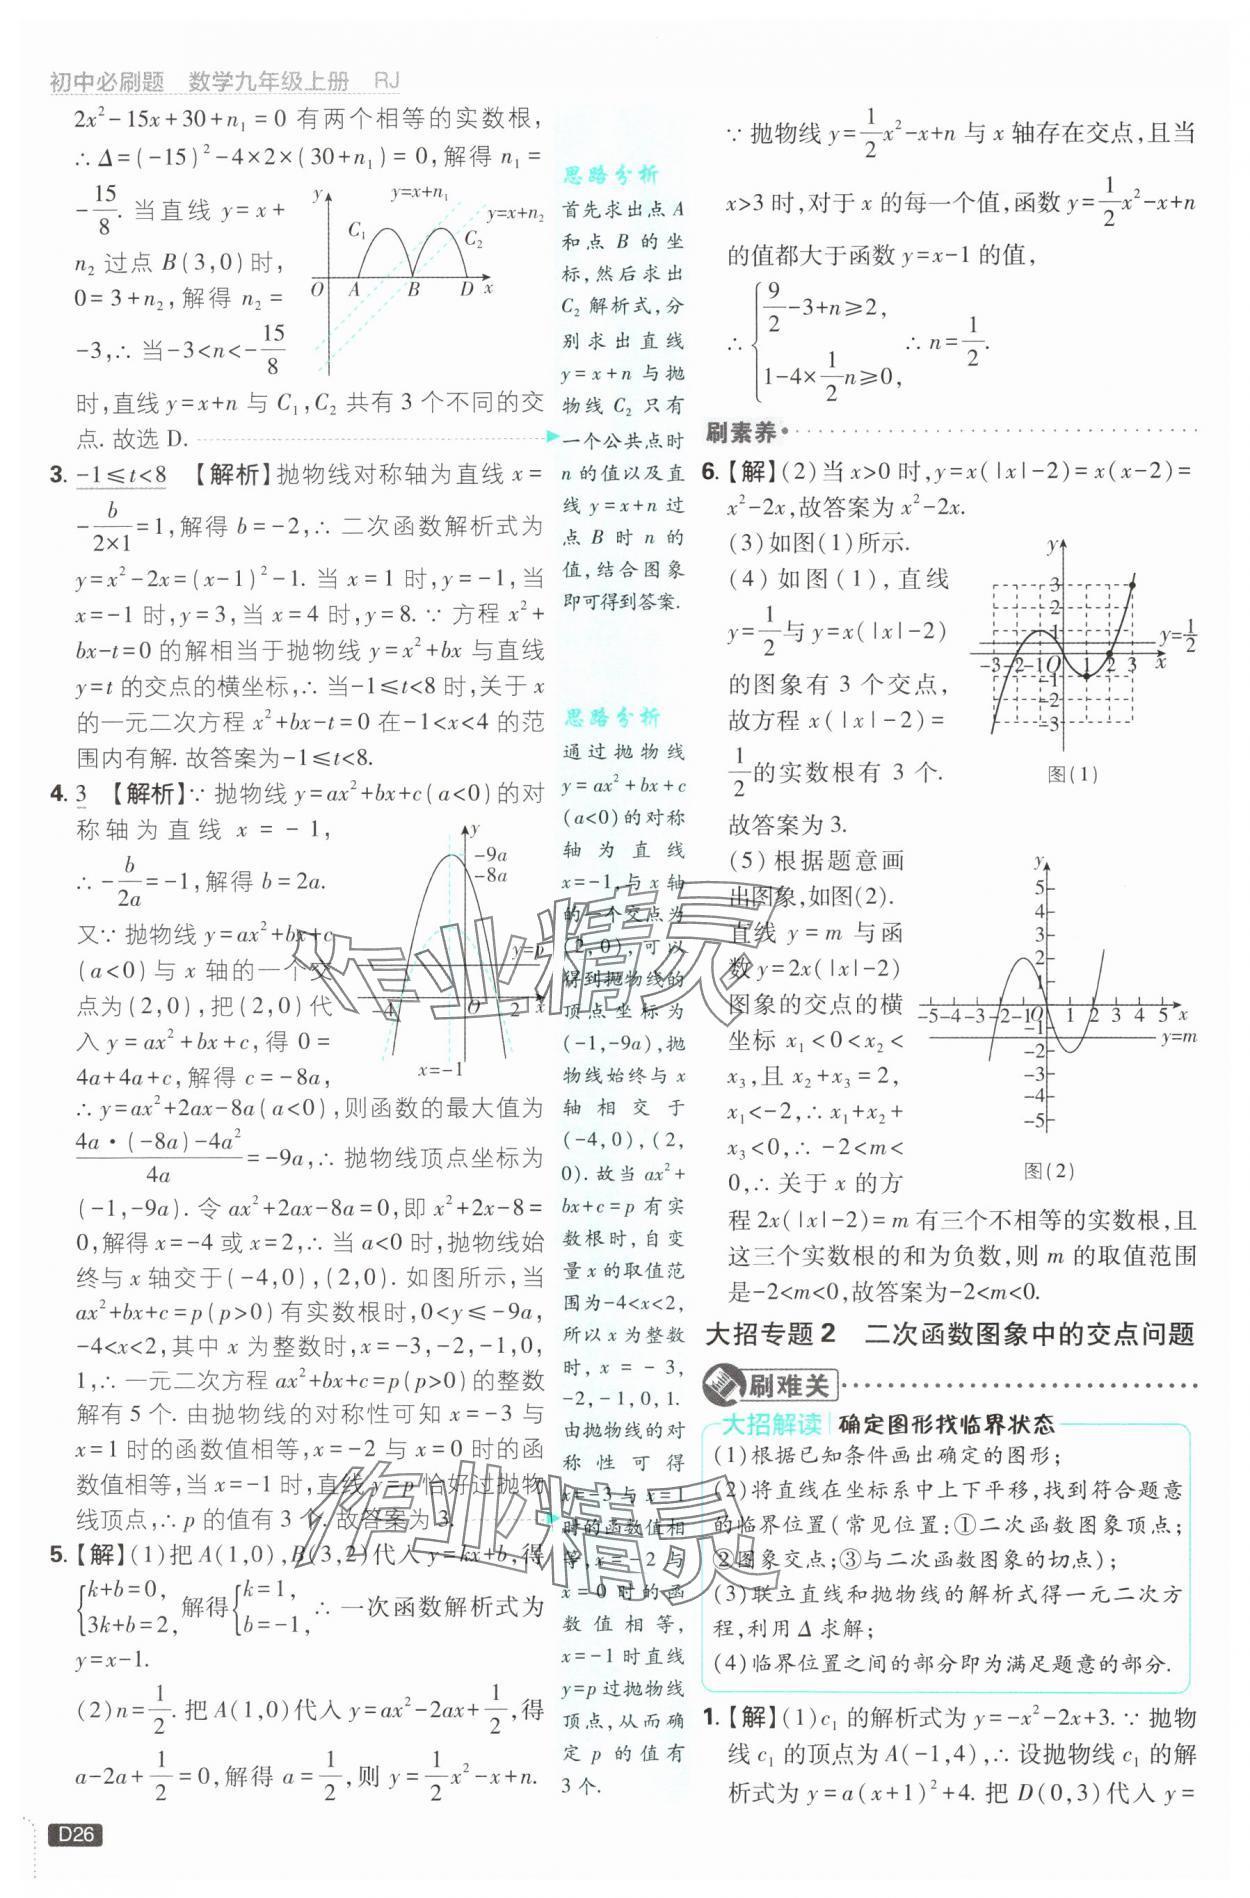 初中必刷题 数学九年级上册 RJ
2x²-15x+30+n₁=0 有两个相等的实数根,
∴Δ=(-15)²-4×2×(30+n₁)=0,解得 n₁=
-15/8. 当直线 y=x+
n₂ 过点 B(3,0)时,
0=3+n₂,解得 n₂=
-3,∴ 当-3<n<-15/8
时,直线 y=x+n 与 C₁,C₂ 共有 3 个不同的交
点. 故选 D.
y y=x+n₁
y=x+n₂
C₁ C₂
O A B D x
3. -1≤t<8 【解析】抛物线对称轴为直线 x=
-b/(2×1)=1,解得 b=-2,∴ 二次函数解析式为
y=x²-2x=(x-1)²-1. 当 x=1 时,y=-1,当
x=-1 时,y=3,当 x=4 时,y=8. ∵ 方程 x²+
bx-t=0 的解相当于抛物线 y=x²+bx 与直线
y=t 的交点的横坐标,∴ 当-1≤t<8 时,关于 x
的一元二次方程 x²+bx-t=0 在-1<x<4 的范
围内有解. 故答案为-1≤t<8.
4. 3 【解析】∵ 抛物线 y=ax²+bx+c(a<0)的对
称轴为直线 x=-1,
∴-b/2a=-1,解得 b=2a.
又∵ 抛物线 y=ax²+bx+c
(a<0)与 x 轴的一个交
点为(2,0),把(2,0)代
入 y=ax²+bx+c,得 0=
4a+4a+c,解得 c=-8a,
y
-9a
-8a
y=p
-4 O 2 x
x=-1
∴y=ax²+2ax-8a(a<0),则函数的最大值为
(4a·(-8a)-4a²)/4a=-9a,∴ 抛物线顶点坐标为
(-1,-9a). 令 ax²+2ax-8a=0,即 x²+2x-8=
0,解得 x=-4 或 x=2,∴ 当 a<0 时,抛物线始
终与 x 轴交于(-4,0),(2,0). 如图所示,当
ax²+bx+c=p(p>0)有实数根时,0<y≤-9a,
-4<x<2,其中 x 为整数时,x=-3,-2,-1,0,
1,∴ 一元二次方程 ax²+bx+c=p(p>0)的整数
解有 5 个. 由抛物线的对称性可知 x=-3 与
x=1 时的函数值相等,x=-2 与 x=0 时的函
数值相等,当 x=-1 时,直线 y=p 恰好过抛物
线顶点,∴p 的值有 3 个. 故答案为 3.
5.【解】(1)把 A(1,0),B(3,2)代入 y=kx+b,得
{k+b=0, 3k+b=2, 解得{k=1, b=-1, ∴ 一次函数解析式为
y=x-1.
(2)n=1/2. 把 A(1,0)代入 y=ax²-2ax+1/2,得
a-2a+1/2=0,解得 a=1/2,则 y=1/2x²-x+n.
D26
思路分析
首先求出点 A
和点 B 的坐
标,然后求出
C₂ 解析式,分
别求出直线
y=x+n 与抛
物线 C₂ 只有
一个公共点时
n 的值以及直
线 y=x+n 过
点 B 时 n 的
值,结合图象
即可得到答案.
思路分析
通过抛物线
y=ax²+bx+c
(a<0)的对称
轴为直线
x=-1,与 x 轴
的一个交点为
(2,0),可以
得到抛物线的
顶点坐标为
(-1,-9a),抛
物线始终与 x
轴相交于
(-4,0),(2,
0). 故当 ax²+
bx+c=p 有实
数根时,自变
量 x 的取值范
围为-4<x<2,
所以 x 为整数
时,x=-3,
-2,-1,0,1.
由抛物线的对
称性可得
x=-3 与 x=1
时的函数值相
等,x=-2 与
x=0 时的函
数值相等,
x=-1 时直线
y=p 过抛物线
顶点,从而确
定 p 的值有
3 个.
∵ 抛物线 y=1/2x²-x+n 与 x 轴存在交点,且当
x>3 时,对于 x 的每一个值,函数 y=1/2x²-x+n
的值都大于函数 y=x-1 的值,
∴{9/2-3+n≥2, 1-4×1/2n≥0, ∴n=1/2.
刷素养
6.【解】(2)当 x>0 时,y=x(|x|-2)=x(x-2)=
x²-2x,故答案为 x²-2x.
(3)如图(1)所示.
(4)如图(1),直线
y=1/2与 y=x(|x|-2)
的图象有 3 个交点,
故方程 x(|x|-2)=
1/2的实数根有 3 个.
故答案为 3.
y
3
2
1
y=1/2
-3-2-1O 1 2 3 x
-1
-3
图(1)
(5)根据题意画
出图象,如图(2).
直线 y=m 与函
数 y=2x(|x|-2)
图象的交点的横
坐标 x₁<0<x₂<
x₃,且 x₂+x₃=2,
x₁<-2,∴x₁+x₂+
x₃<0,∴-2<m<
0,∴ 关于 x 的方
y
5
4
3
2
1
-5-4-3-2-1O 1 2 3 4 5 x
y=m
-2
-3
-4
-5
图(2)
程 2x(|x|-2)=m 有三个不相等的实数根,且
这三个实数根的和为负数,则 m 的取值范围
是-2<m<0,故答案为-2<m<0.
大招专题 2 二次函数图象中的交点问题
刷难关
大招解读 确定图形找临界状态
(1)根据已知条件画出确定的图形;
(2)将直线在坐标系中上下平移,找到符合题意
的临界位置(常见位置:①二次函数图象顶点;
②图象交点;③与二次函数图象的切点);
(3)联立直线和抛物线的解析式得一元二次方
程,利用 Δ 求解;
(4)临界位置之间的部分即为满足题意的部分.
1.【解】(1)c₁ 的解析式为 y=-x²-2x+3. ∵ 抛物
线 c₁ 的顶点为 A(-1,4),∴ 设抛物线 c₁ 的解
析式为 y=a(x+1)²+4. 把 D(0,3)代入 y=
作业精灵
作业精灵